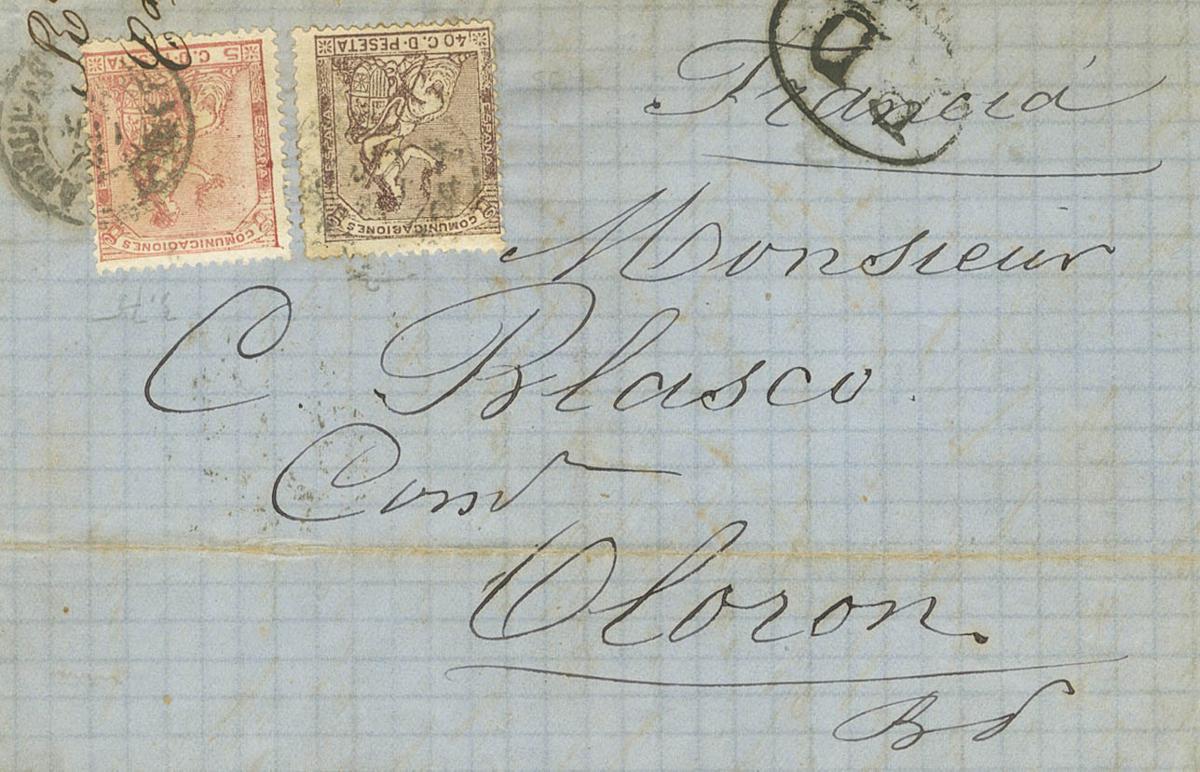 Francia
P D
5 C. D. PESETA
ESPAÑA
COMUNICACIONES
40 C. D. PESETA
ESPAÑA
COMUNICACIONES
Monsieur
C. Blasco.
Oloron.